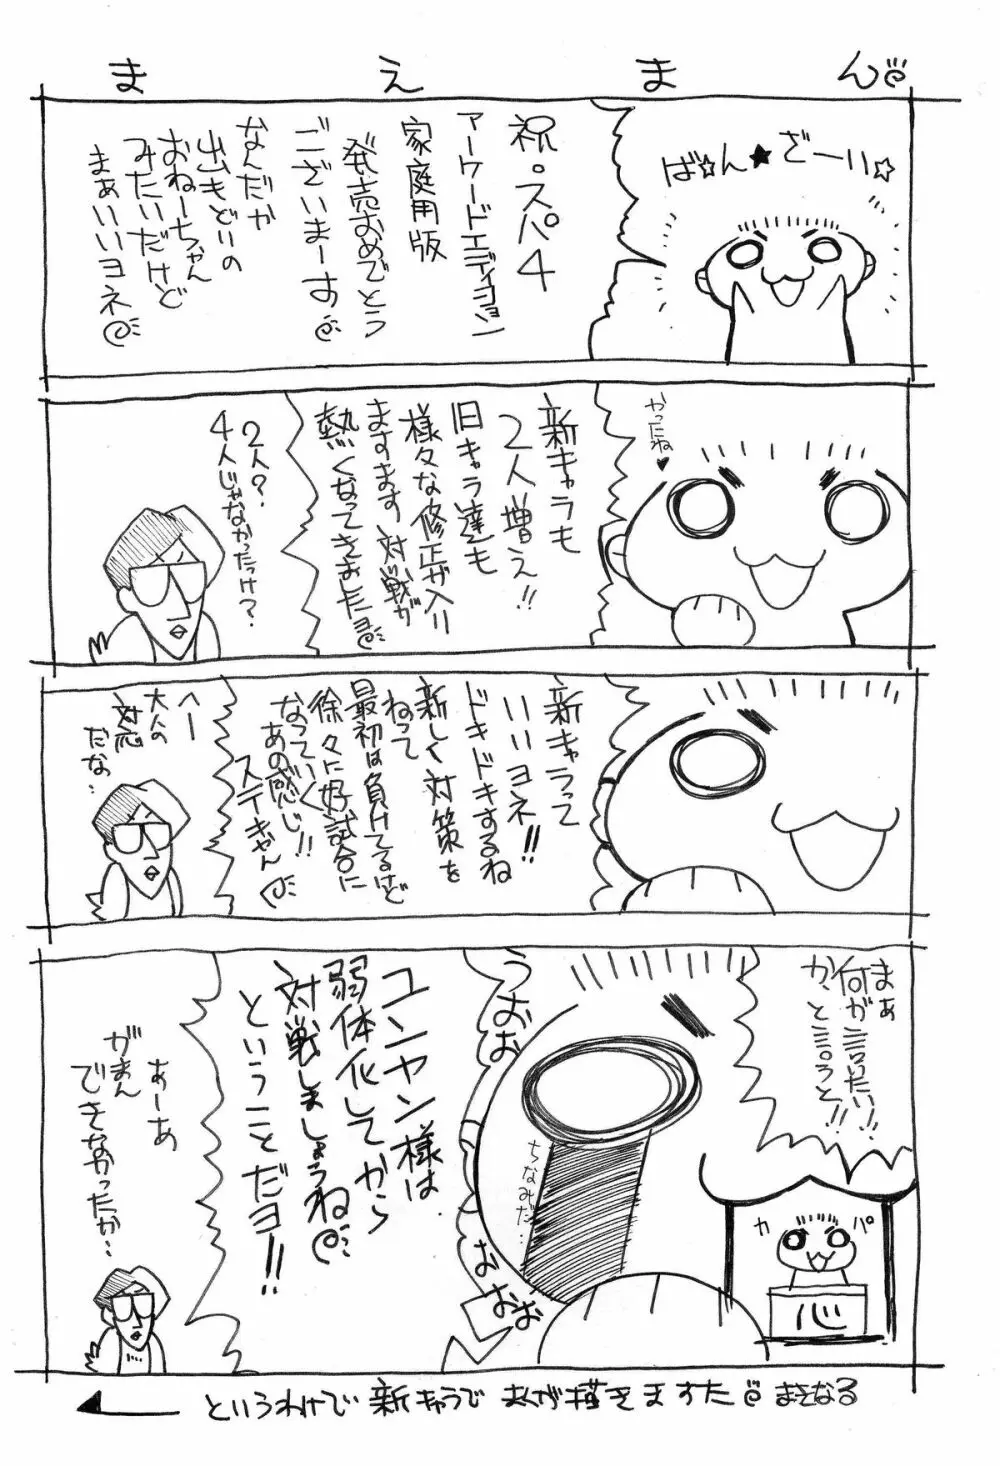 まえまん
ば☆ん★ざーい☆
祝。スパ4
アーケードエディション
家庭用版
発売おめでとう
ございまーす
なんだか
出もどりの
おねーちゃん
みたいだけど
まぁいいヨネ
やったね♥
新キャラも
2人増え!!
旧キャラ達も
様々な修正が入り
ますます対戦が
熱くなってきましたヨ
2人?
4人じゃなかったっけ?
新キャラって
いいヨネ!!
ドキドキするね
新しく対策を
ねって
最初は負けてるけど
徐々に好試合に
なっていく
あの感じ!!
ステキやん
へー
大人の
対応
だな‥
まぁ
何が言いたい!!
か、と言うと!!
カパ
心
うおぉ
ちなみだ…
おおおお
ユンヤン様は
弱体化してから
対戦しましょうね
ということだヨ!!
あーあ
がまん
できなかったか…
というわけで 新キャラで まんが描きますた まさなる